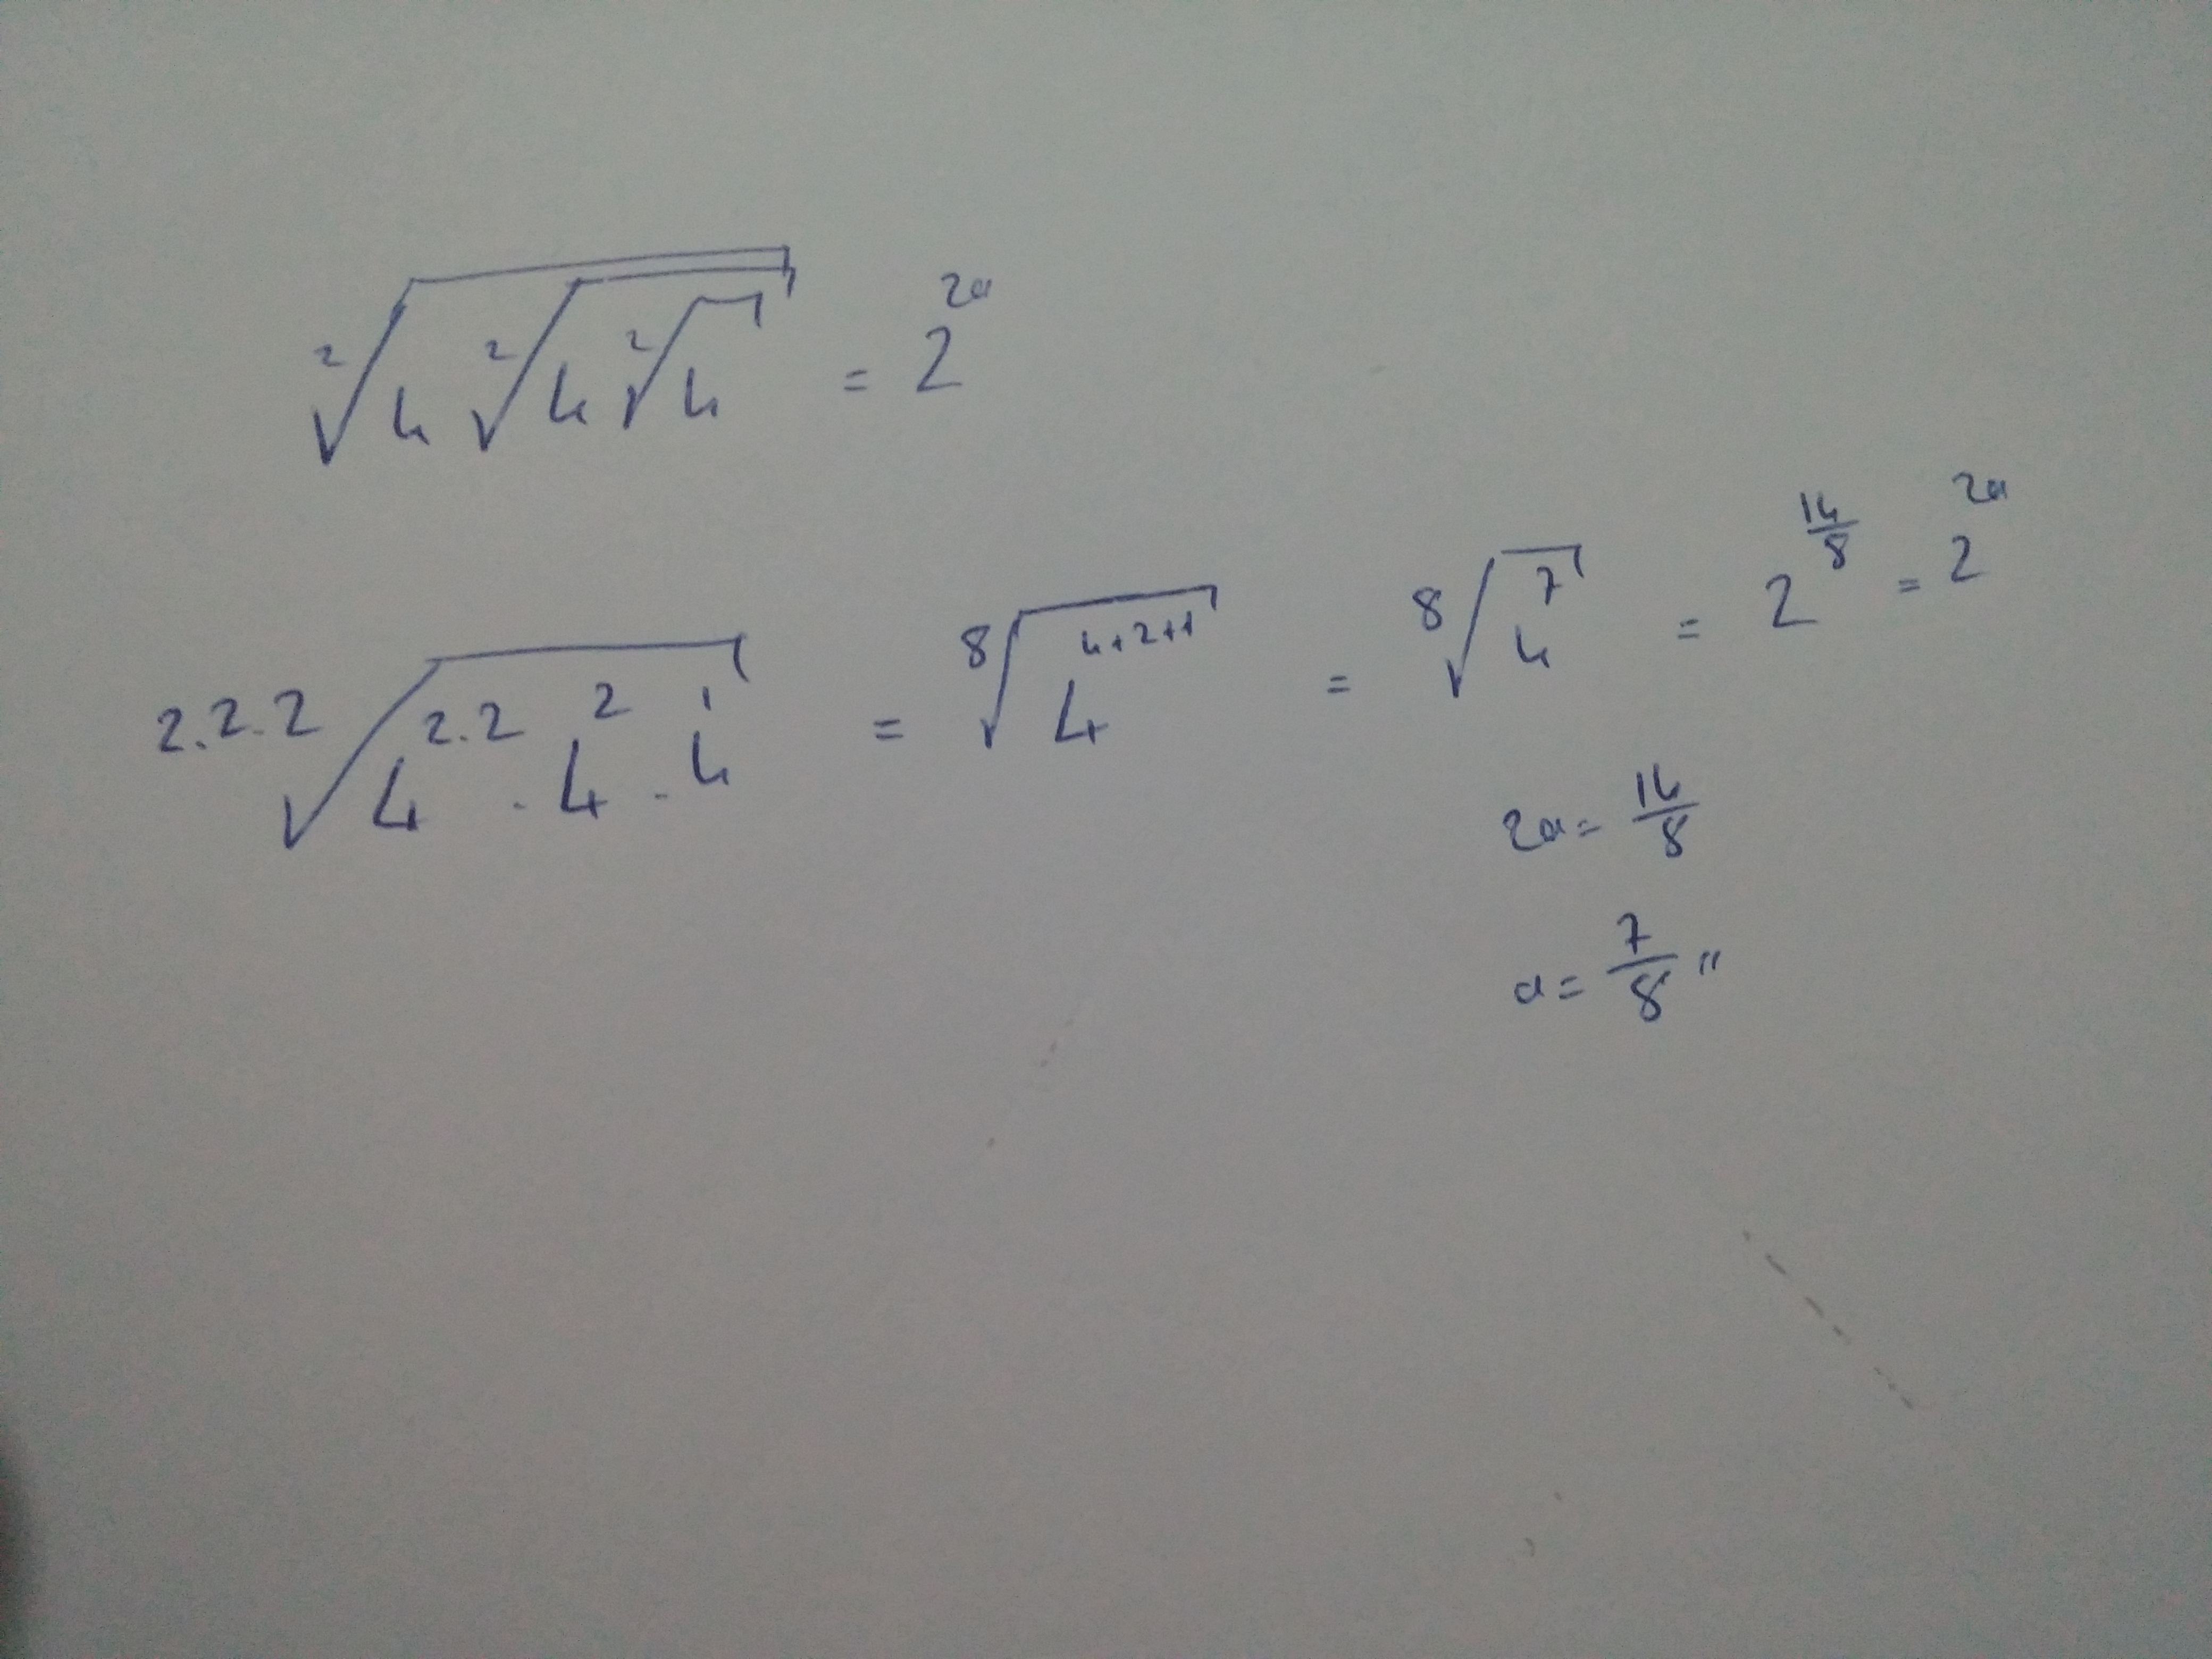 ²√(4 ²√(4 ²√4)) = 2^(2a)
2.2.2√(4^(2.2) . 4^2 . 4^1) = 8√(4^(4+2+1)) = 8√(4^7) = 2^(14/8) = 2^(2a)
2a = 14/8
a = 7/8 "